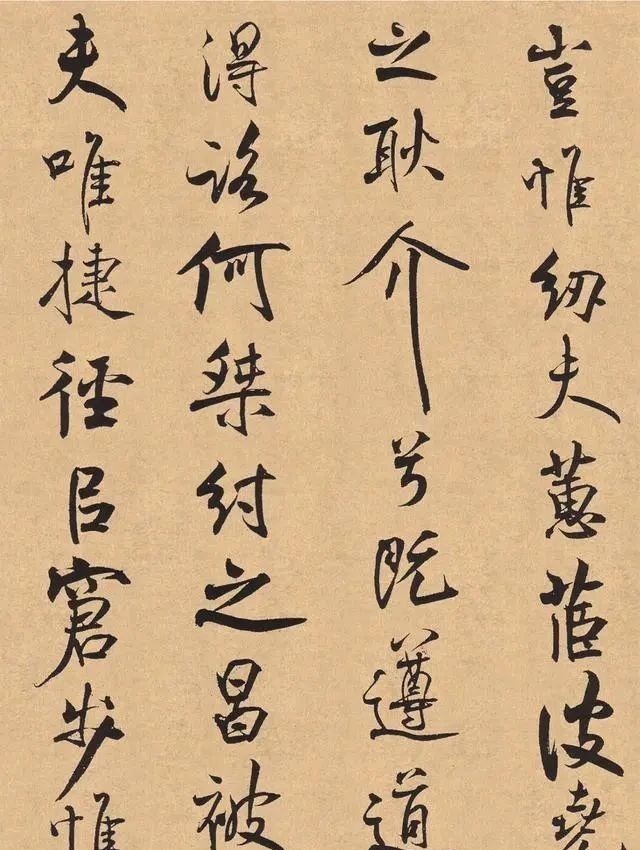 豈惟紉夫蕙茝彼堯
之耿介兮既遵道
得路何桀紂之昌被
夫唯捷徑㠯窘步惟